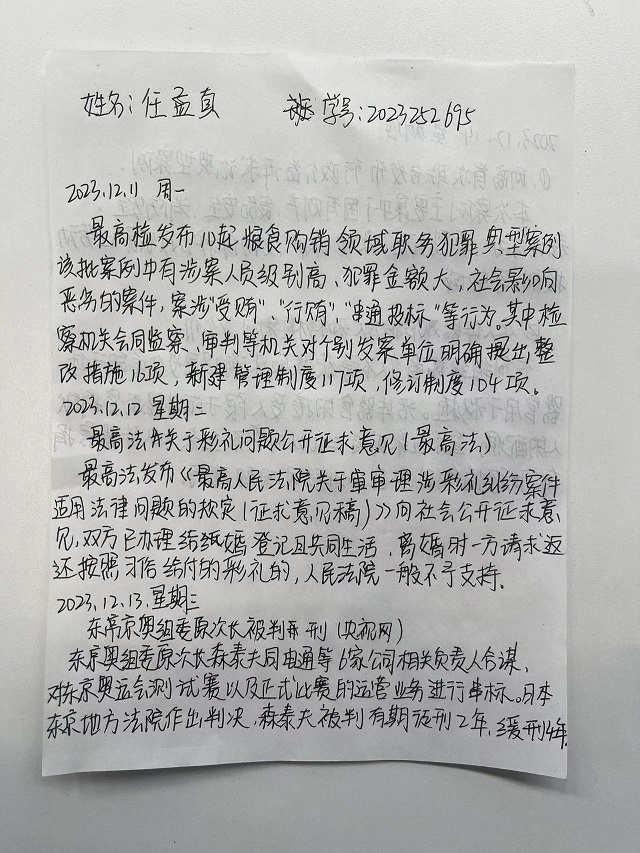 姓名:任益真 学号:2023252695
2023.12.11 周一
最高检发布10起粮食购销领域职务犯罪典型案例
该批案例中有涉案人员级别高、犯罪金额大,社会影响
恶劣的案件,案涉“受贿”、“行贿”,“串通投标”等行为。其中检
察机关会同监察、审判等机关对个别发案单位明确提出整
改措施16项,新建管理制度117项,修订制度104项。
2023.12.12 星期二
最高法就关于彩礼问题公开征求意见(最高法)
最高法发布《最高人民法院关于审理涉彩礼纠纷案件
适用法律问题的规定(征求意见稿)》向社会公开征求意
见,双方已办理结婚登记且共同生活,离婚时一方请求返
还按照习俗给付的彩礼的,人民法院一般不予支持。
2023.12.13.星期三
东京奥组委原次长被判刑(央视网)
东京奥组委原次长森泰夫同电通等6家公司相关负责人合谋,
对东京奥运会测试赛以及正式比赛的运营业务进行串标。日本
东京地方法院作出判决,森泰夫被判有期徒刑2年,缓刑4年